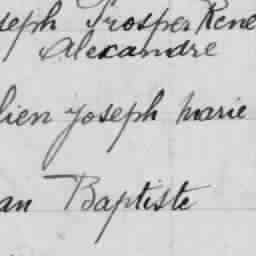 seph Prosper René
Alexandre
lien Joseph Marie
an Baptiste